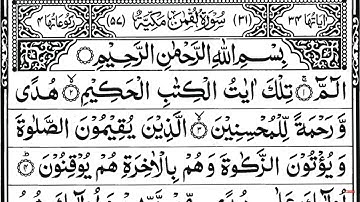 اٰیَاتُهَا ٣٤ (٣١) سُوْرَةُ لُقْمٰنَ مَكِّیَّةٌ (٥٧) رُكُوْعَاتُهَا ٤
بِسْمِ اللّٰهِ الرَّحْمٰنِ الرَّحِیْمِ
الٓمّٓ ۝١ تِلْكَ اٰیٰتُ الْكِتٰبِ الْحَكِیْمِ ۝٢ هُدًی
وَّ رَحْمَةً لِّلْمُحْسِنِیْنَ ۝٣ الَّذِیْنَ یُقِیْمُوْنَ الصَّلٰوةَ
وَ یُؤْتُوْنَ الزَّكٰوةَ وَ هُمْ بِالْاٰخِرَةِ هُمْ یُوْقِنُوْنَ ۝٤